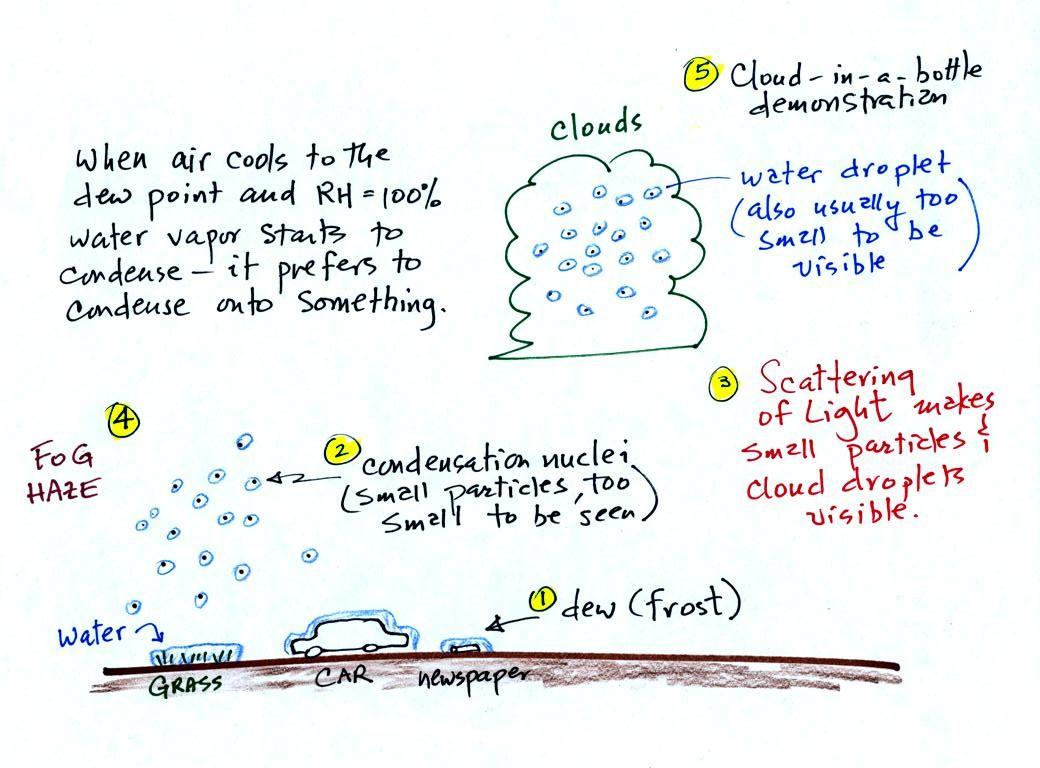 5 Cloud-in-a-bottle
demonstration
Clouds
When air cools to the
dew point and RH = 100%
water vapor starts to
condense – it prefers to
condense onto something.
water droplet
(also usually too
small to be
visible)
3 Scattering
of Light makes
small particles &
cloud droplets
visible.
4
FOG
HAZE
2 condensation nuclei
(small particles, too
small to be seen)
1 dew (frost)
water
GRASS
CAR
newspaper